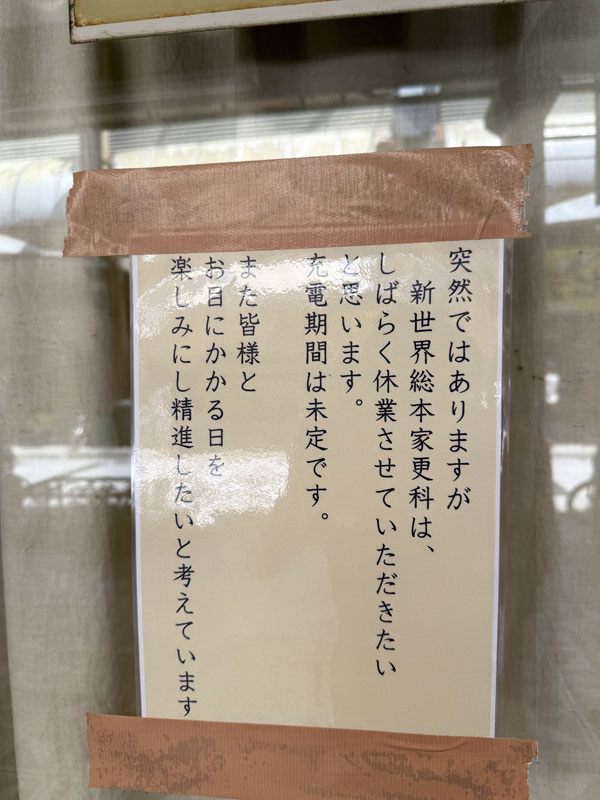 突然ではありますが
新世界総本家更科は、
しばらく休業させていただきたい
と思います。
充電期間は未定です。
また皆様と
お目にかかる日を
楽しみにし精進したいと考えています